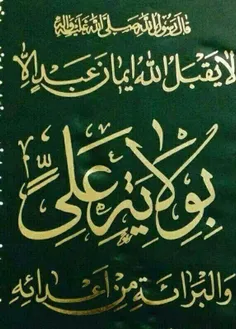 قال رسول الله صلى الله عليه وآله
لا يقبل الله إيمان عبد إلا
بِوِلايَةِ عَلِيٍّ
والبرائة من أعدائه